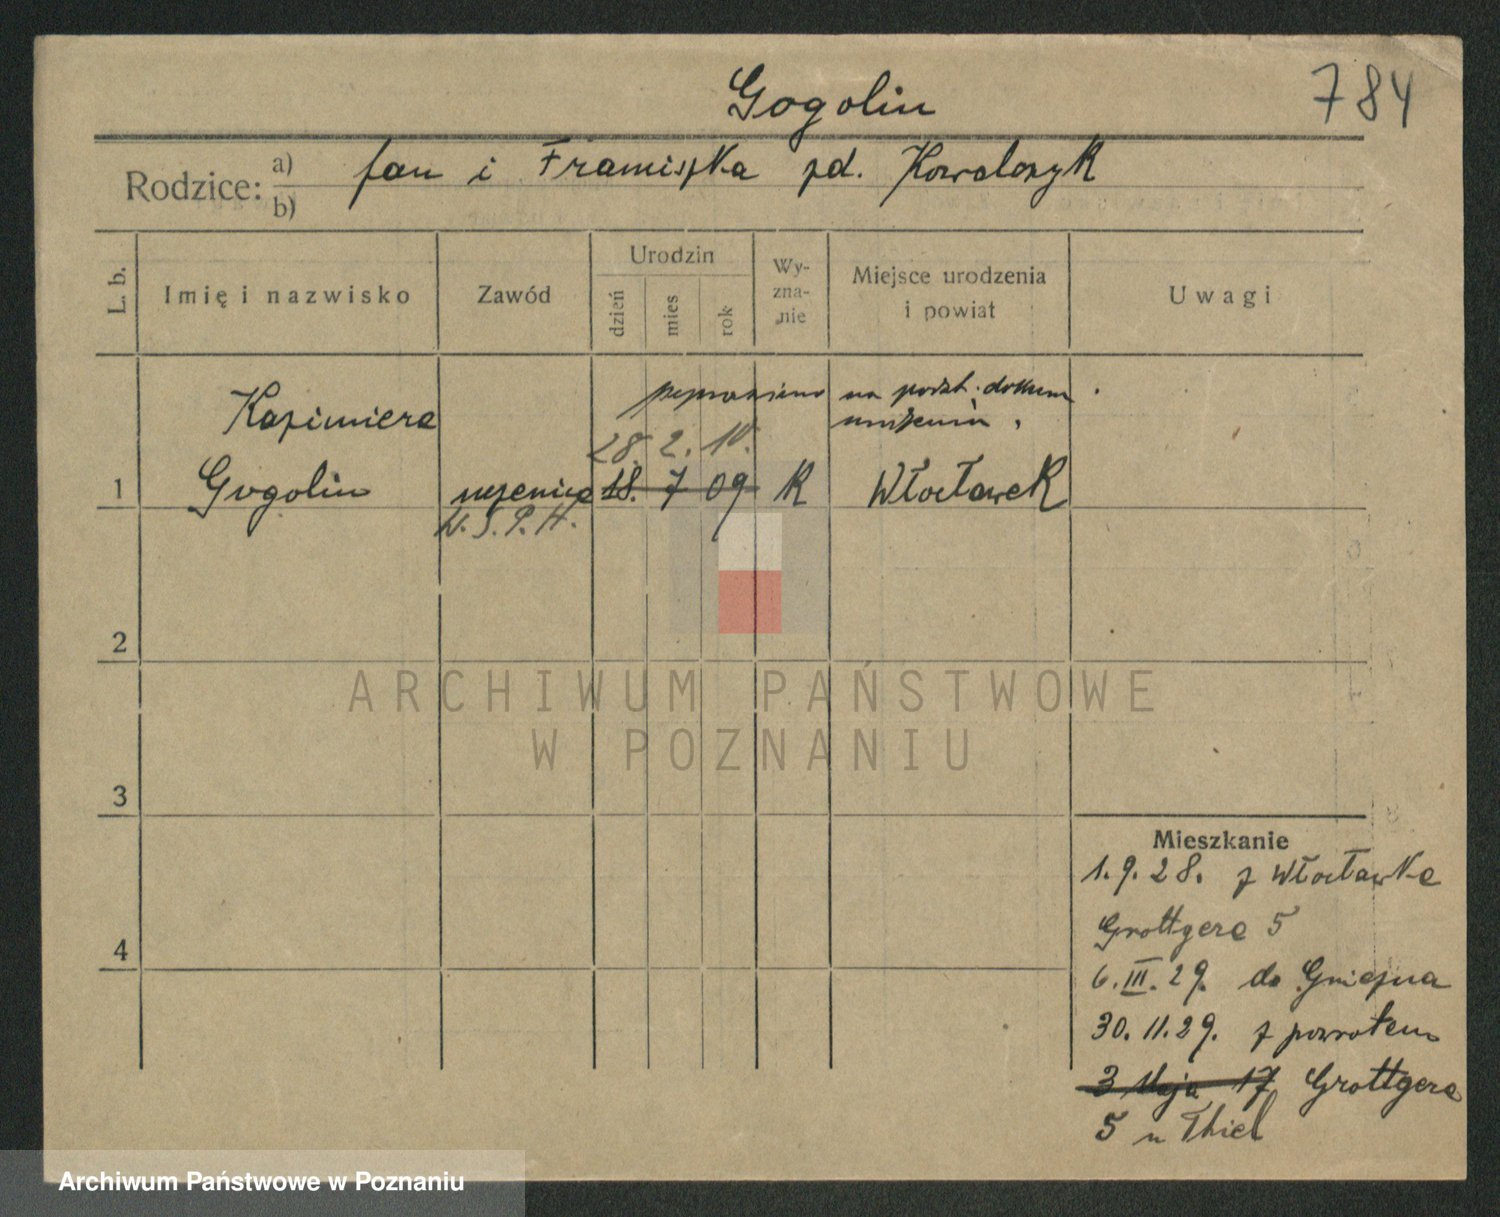 784
Gogolin
Rodzice: a) b) Jan i Franciszka zd. Kowalczyk
L. b.
Imię i nazwisko
Zawód
Urodzin
dzień
mies
rok
Wy-
zna-
nie
Miejsce urodzenia
i powiat
Uwagi
poprawiono na podst. dokum.
Kazimiera
28. 2. 10.
1 Gogolin uczenica 18. 7 09 K Włocławek
W. S. P. H.
2
3
4
Mieszkanie
1. 9. 28. z Włocławka
Grottgera 5
6. III. 29. do Gniezna
30. 11. 29. z powrotem
3 Maja 17 Grottgera
5 u Thiel
ARCHIWUM PAŃSTWOWE
W POZNANIU
Archiwum Państwowe w Poznaniu